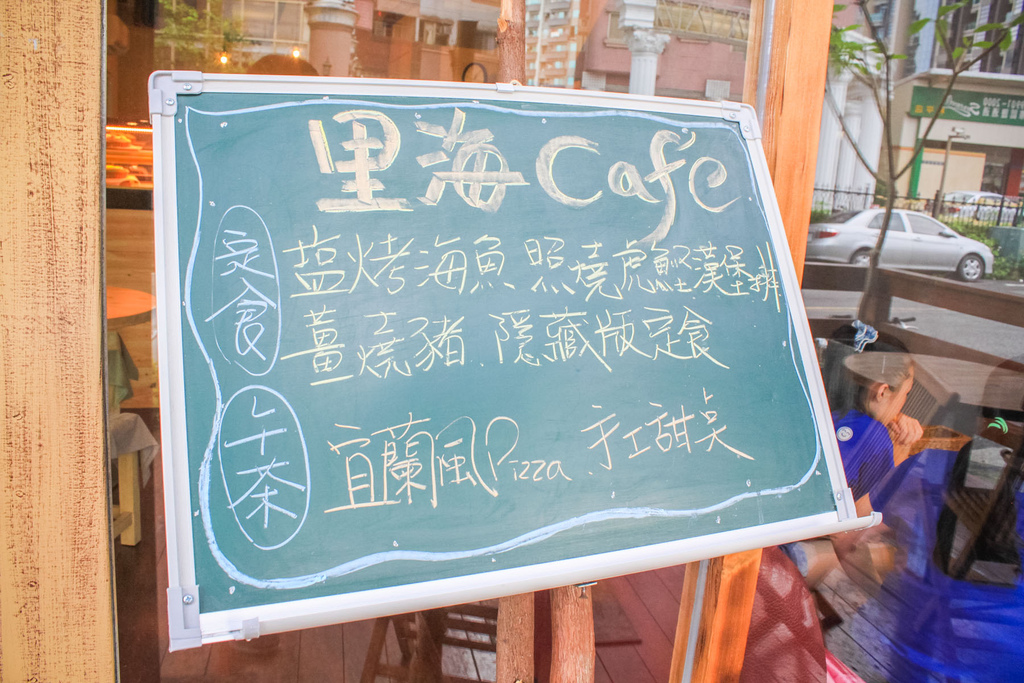 里海 Café
定食
塩烤海魚 照燒虎魚漢堡排
薑燒豬、隱藏版定食
下午茶
宜蘭風Pizza、手工甜点